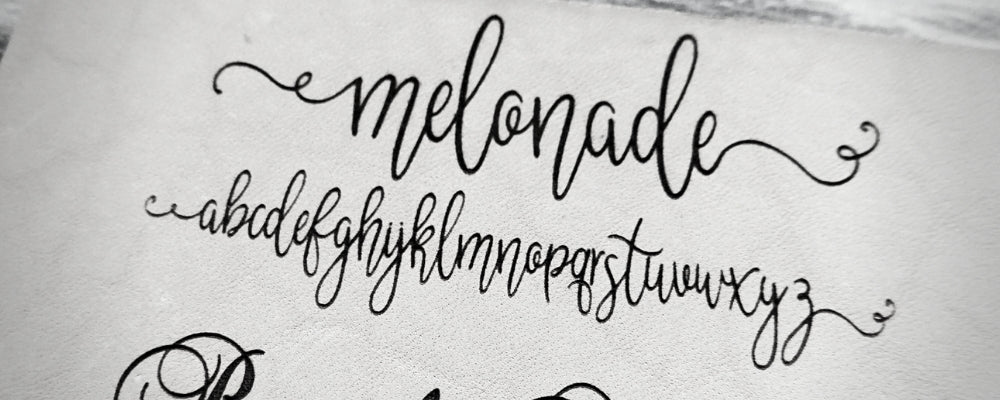 melonade
abcdefghijklmnopqrstuvwxyz